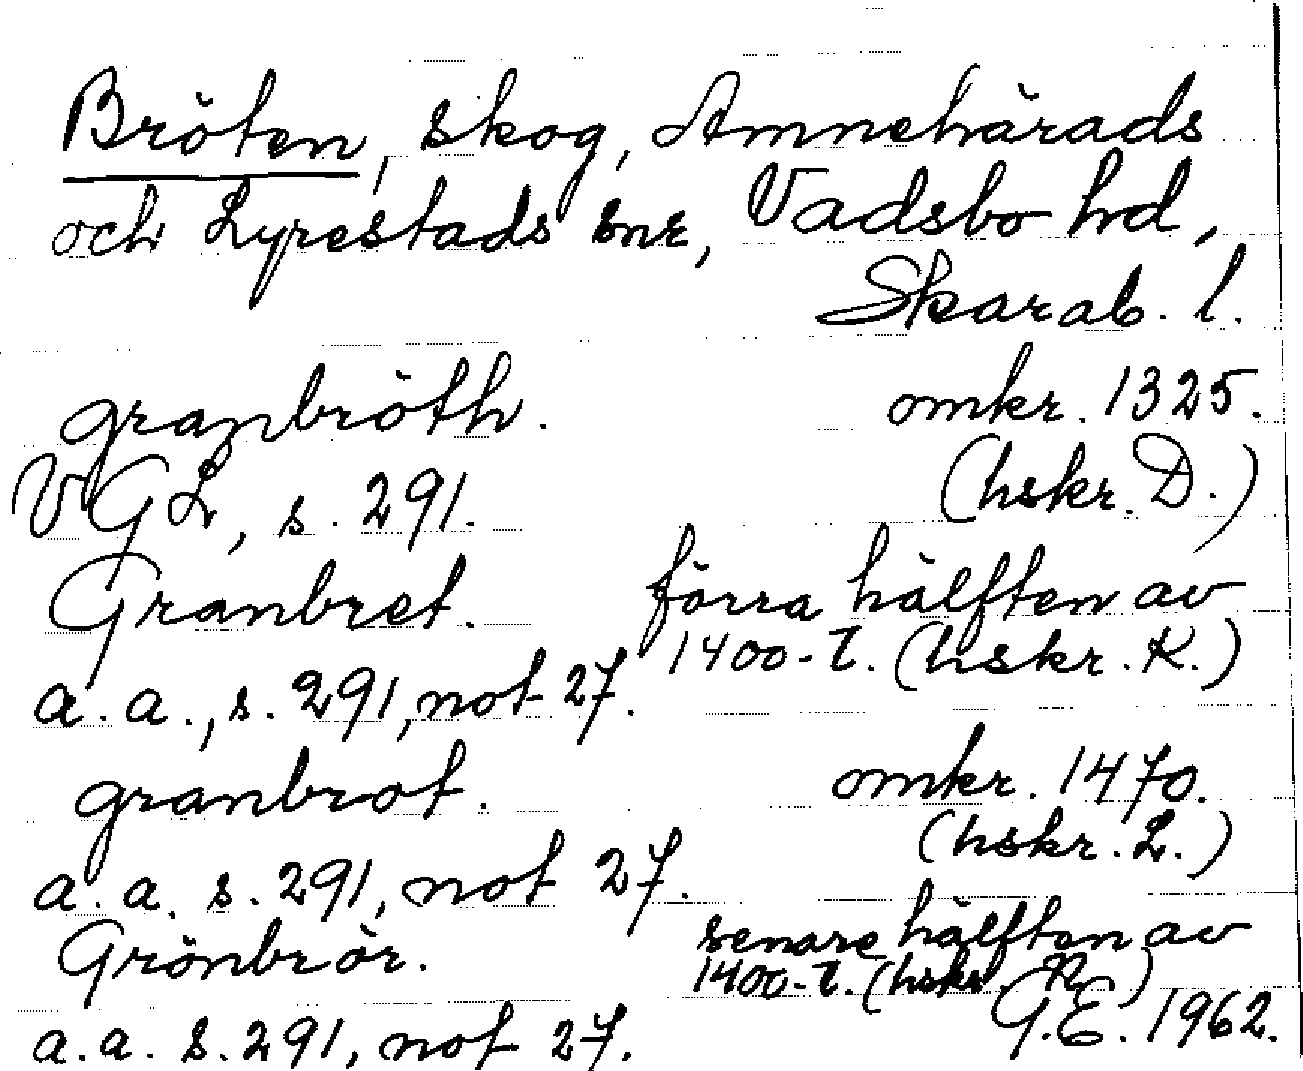 Bröten, skog, Amnehärads
och Lyrestads snr, Vadsbo hd,
Skarab. l.
granbröth. omkr. 1325.
VGL, s. 291. (hskr. D.)
Granbret. förra hälften av
1400-t. (hskr. K.)
a.a., s. 291, not 27.
granbrot. omkr. 1470.
(hskr. L.)
a.a. s. 291, not 27.
Grönbrör. senare hälften av
1400-t. (hskr. )
G.E. 1962.
a.a. s. 291, not 27.